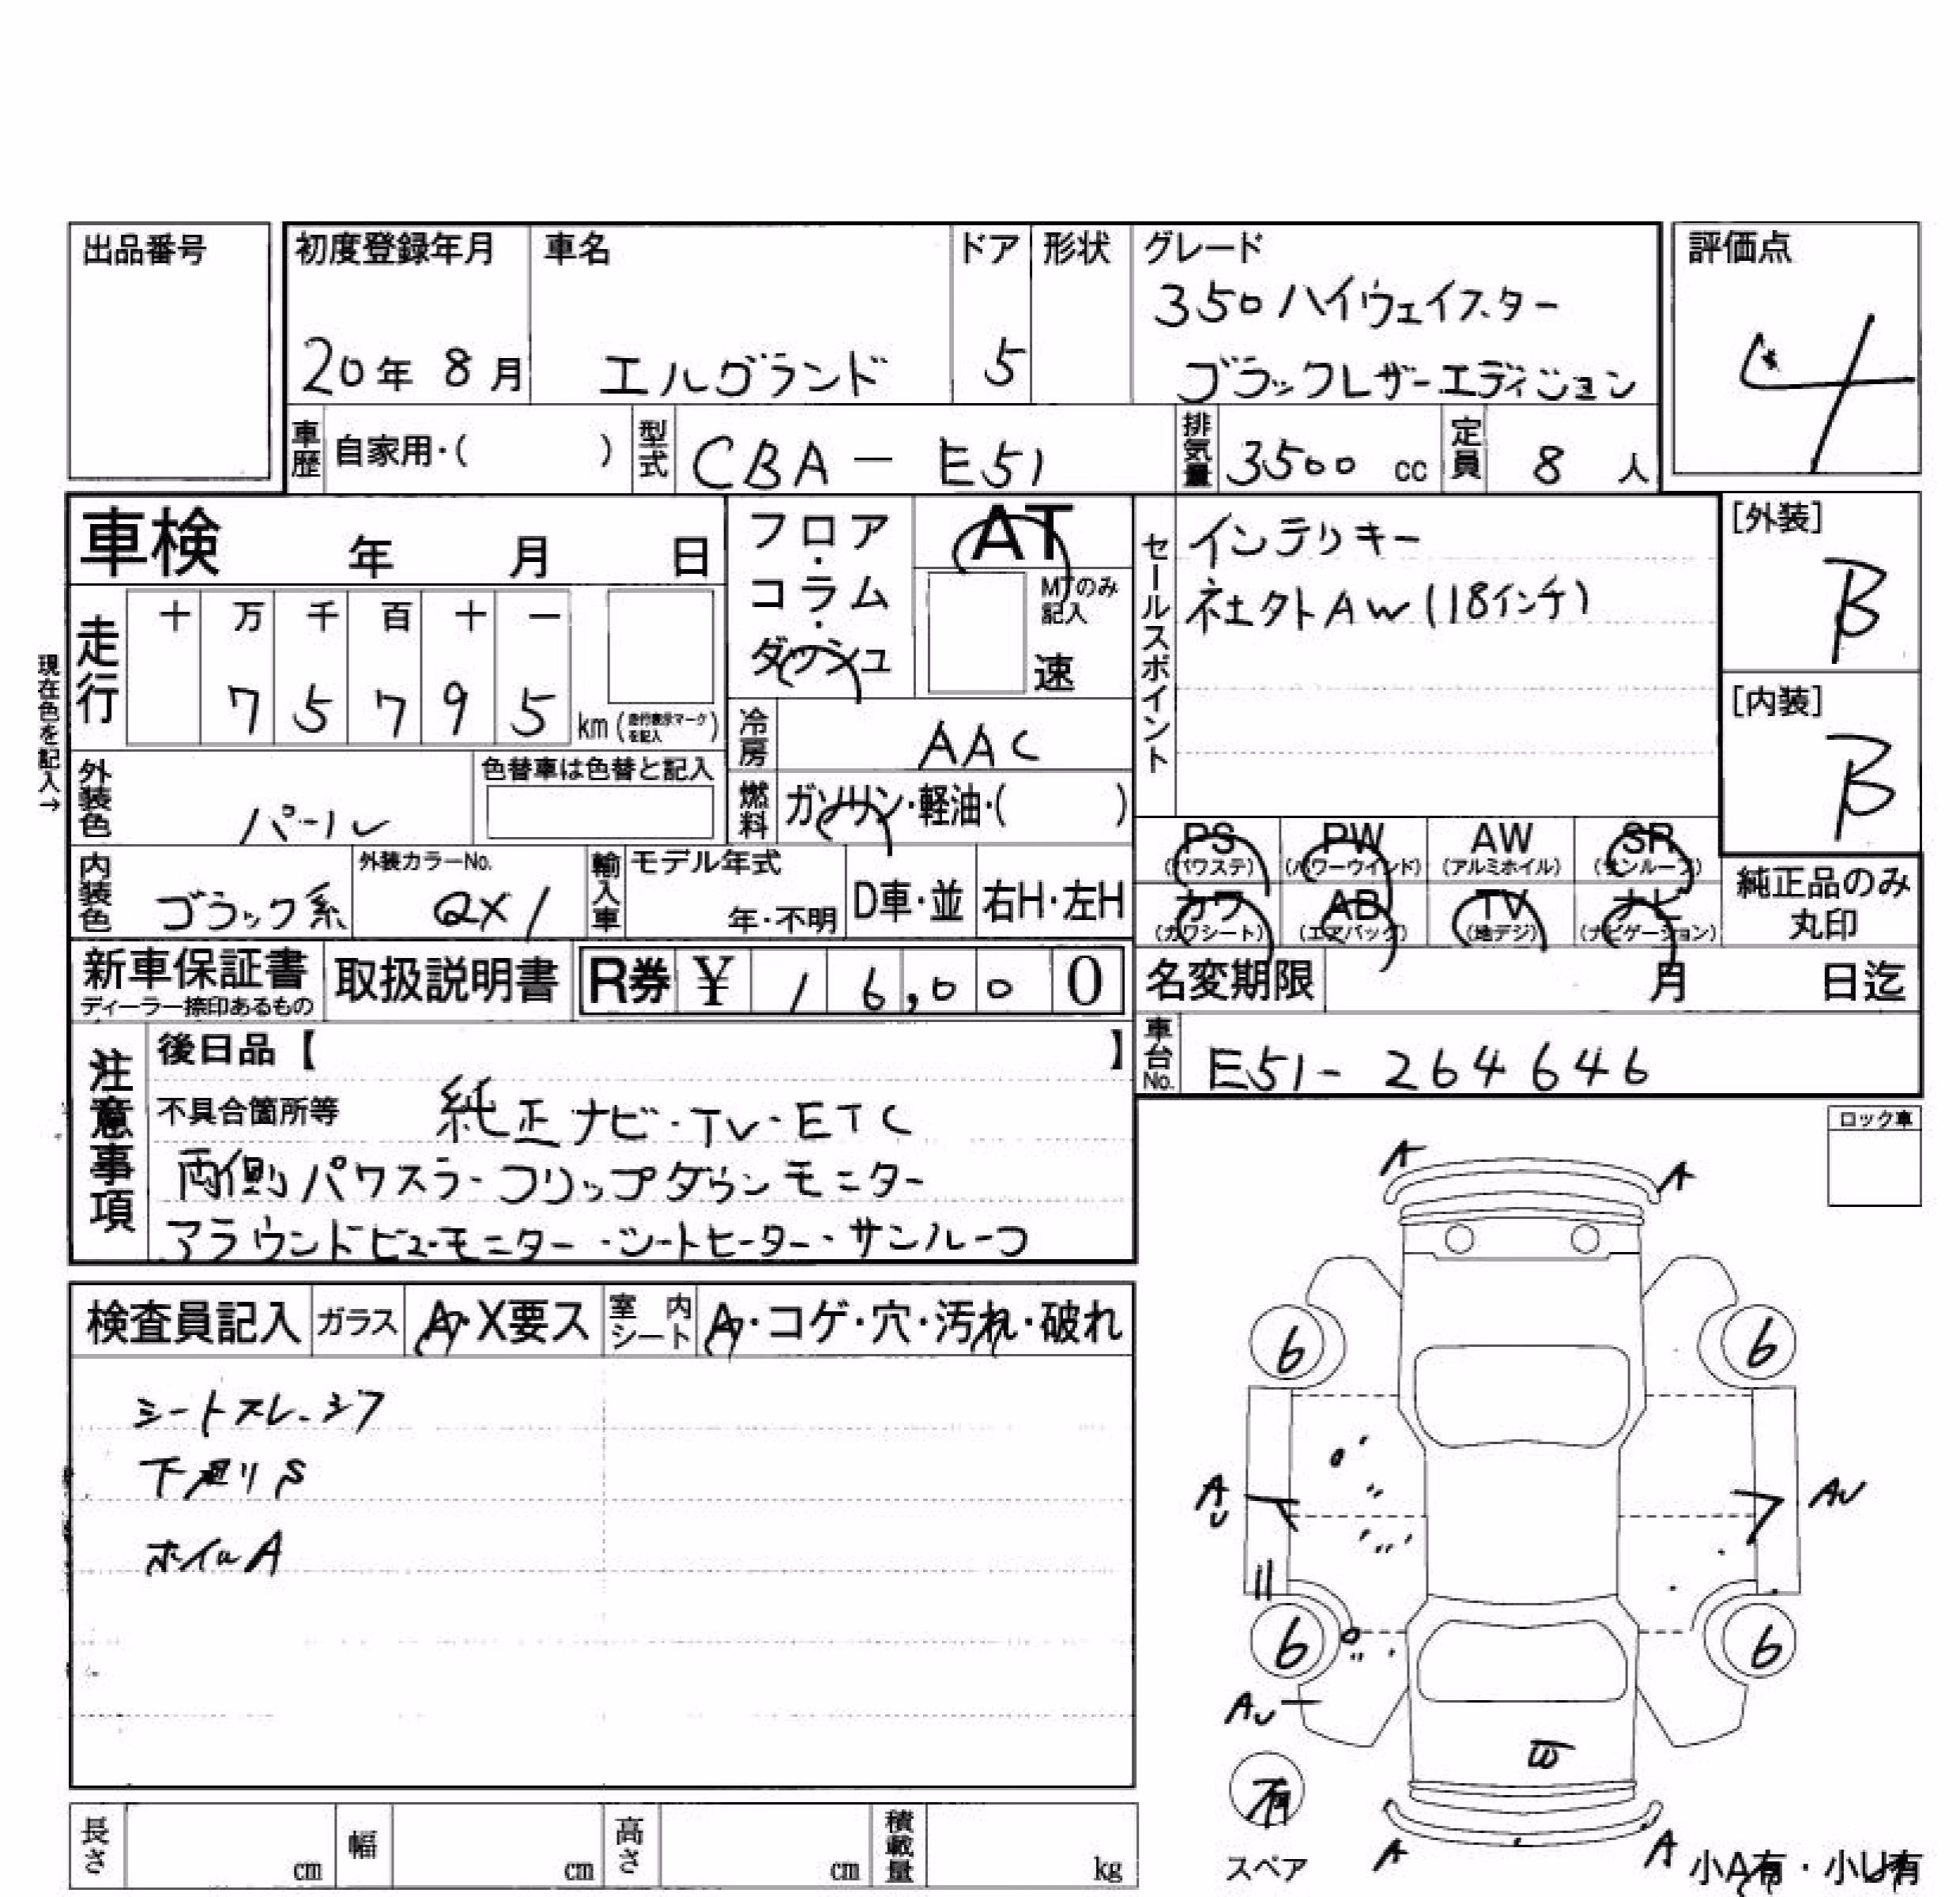 出品番号
初度登録年月 車名 ドア 形状 グレード 評価点
350ハイウェイスター
20年 8月 エルグランド 5 ブラックレザーエディション 4
車歴 自家用・( ) 型式 CBA - E51 排気量 3500 cc 定員 8 人
車検 年 月 日
フロア・コラム・ダッシュ
AT
MTのみ記入
速
セールスポイント
インテリキー
社外AW(18インチ)
[外装]
B
[内装]
B
現在色を記入→
走行 十 万 千 百 十 一
7 5 7 9 5 km (走行表示マークを記入)
冷房 AAC
外装色 パール 色替車は色替と記入
燃料 ガソリン・軽油・( )
PS (パワステ) PW (パワーウインド) AW (アルミホイル) SR (サンルーフ)
カワ (カワシート) AB (エアバッグ) TV (地デジ) ナビ (ナビゲーション)
純正品のみ丸印
内装色 ブラック系 外装カラーNo. QX1 輸入車 モデル年式 年・不明 D車・並 右H・左H
新車保証書 ディーラー捺印あるもの 取扱説明書 R券 ¥ 16,000
名変期限 月 日迄
車台No. E51-264646
注意事項
後日品【 】
不具合箇所等 純正ナビ・TV・ETC
両側パワスラ・フリップダウンモニター
アラウンドビューモニター・シートヒーター・サンルーフ
ロック車
検査員記入 ガラス A・X要ス 室内シート A・コゲ・穴・汚れ・破れ
シートスレ、シワ
下廻りS
ホイルA
A A
6 6
AU AU
6 6
AU
有
スペア
A A
小A有・小U有
長さ cm 幅 cm 高さ cm 積載量 kg